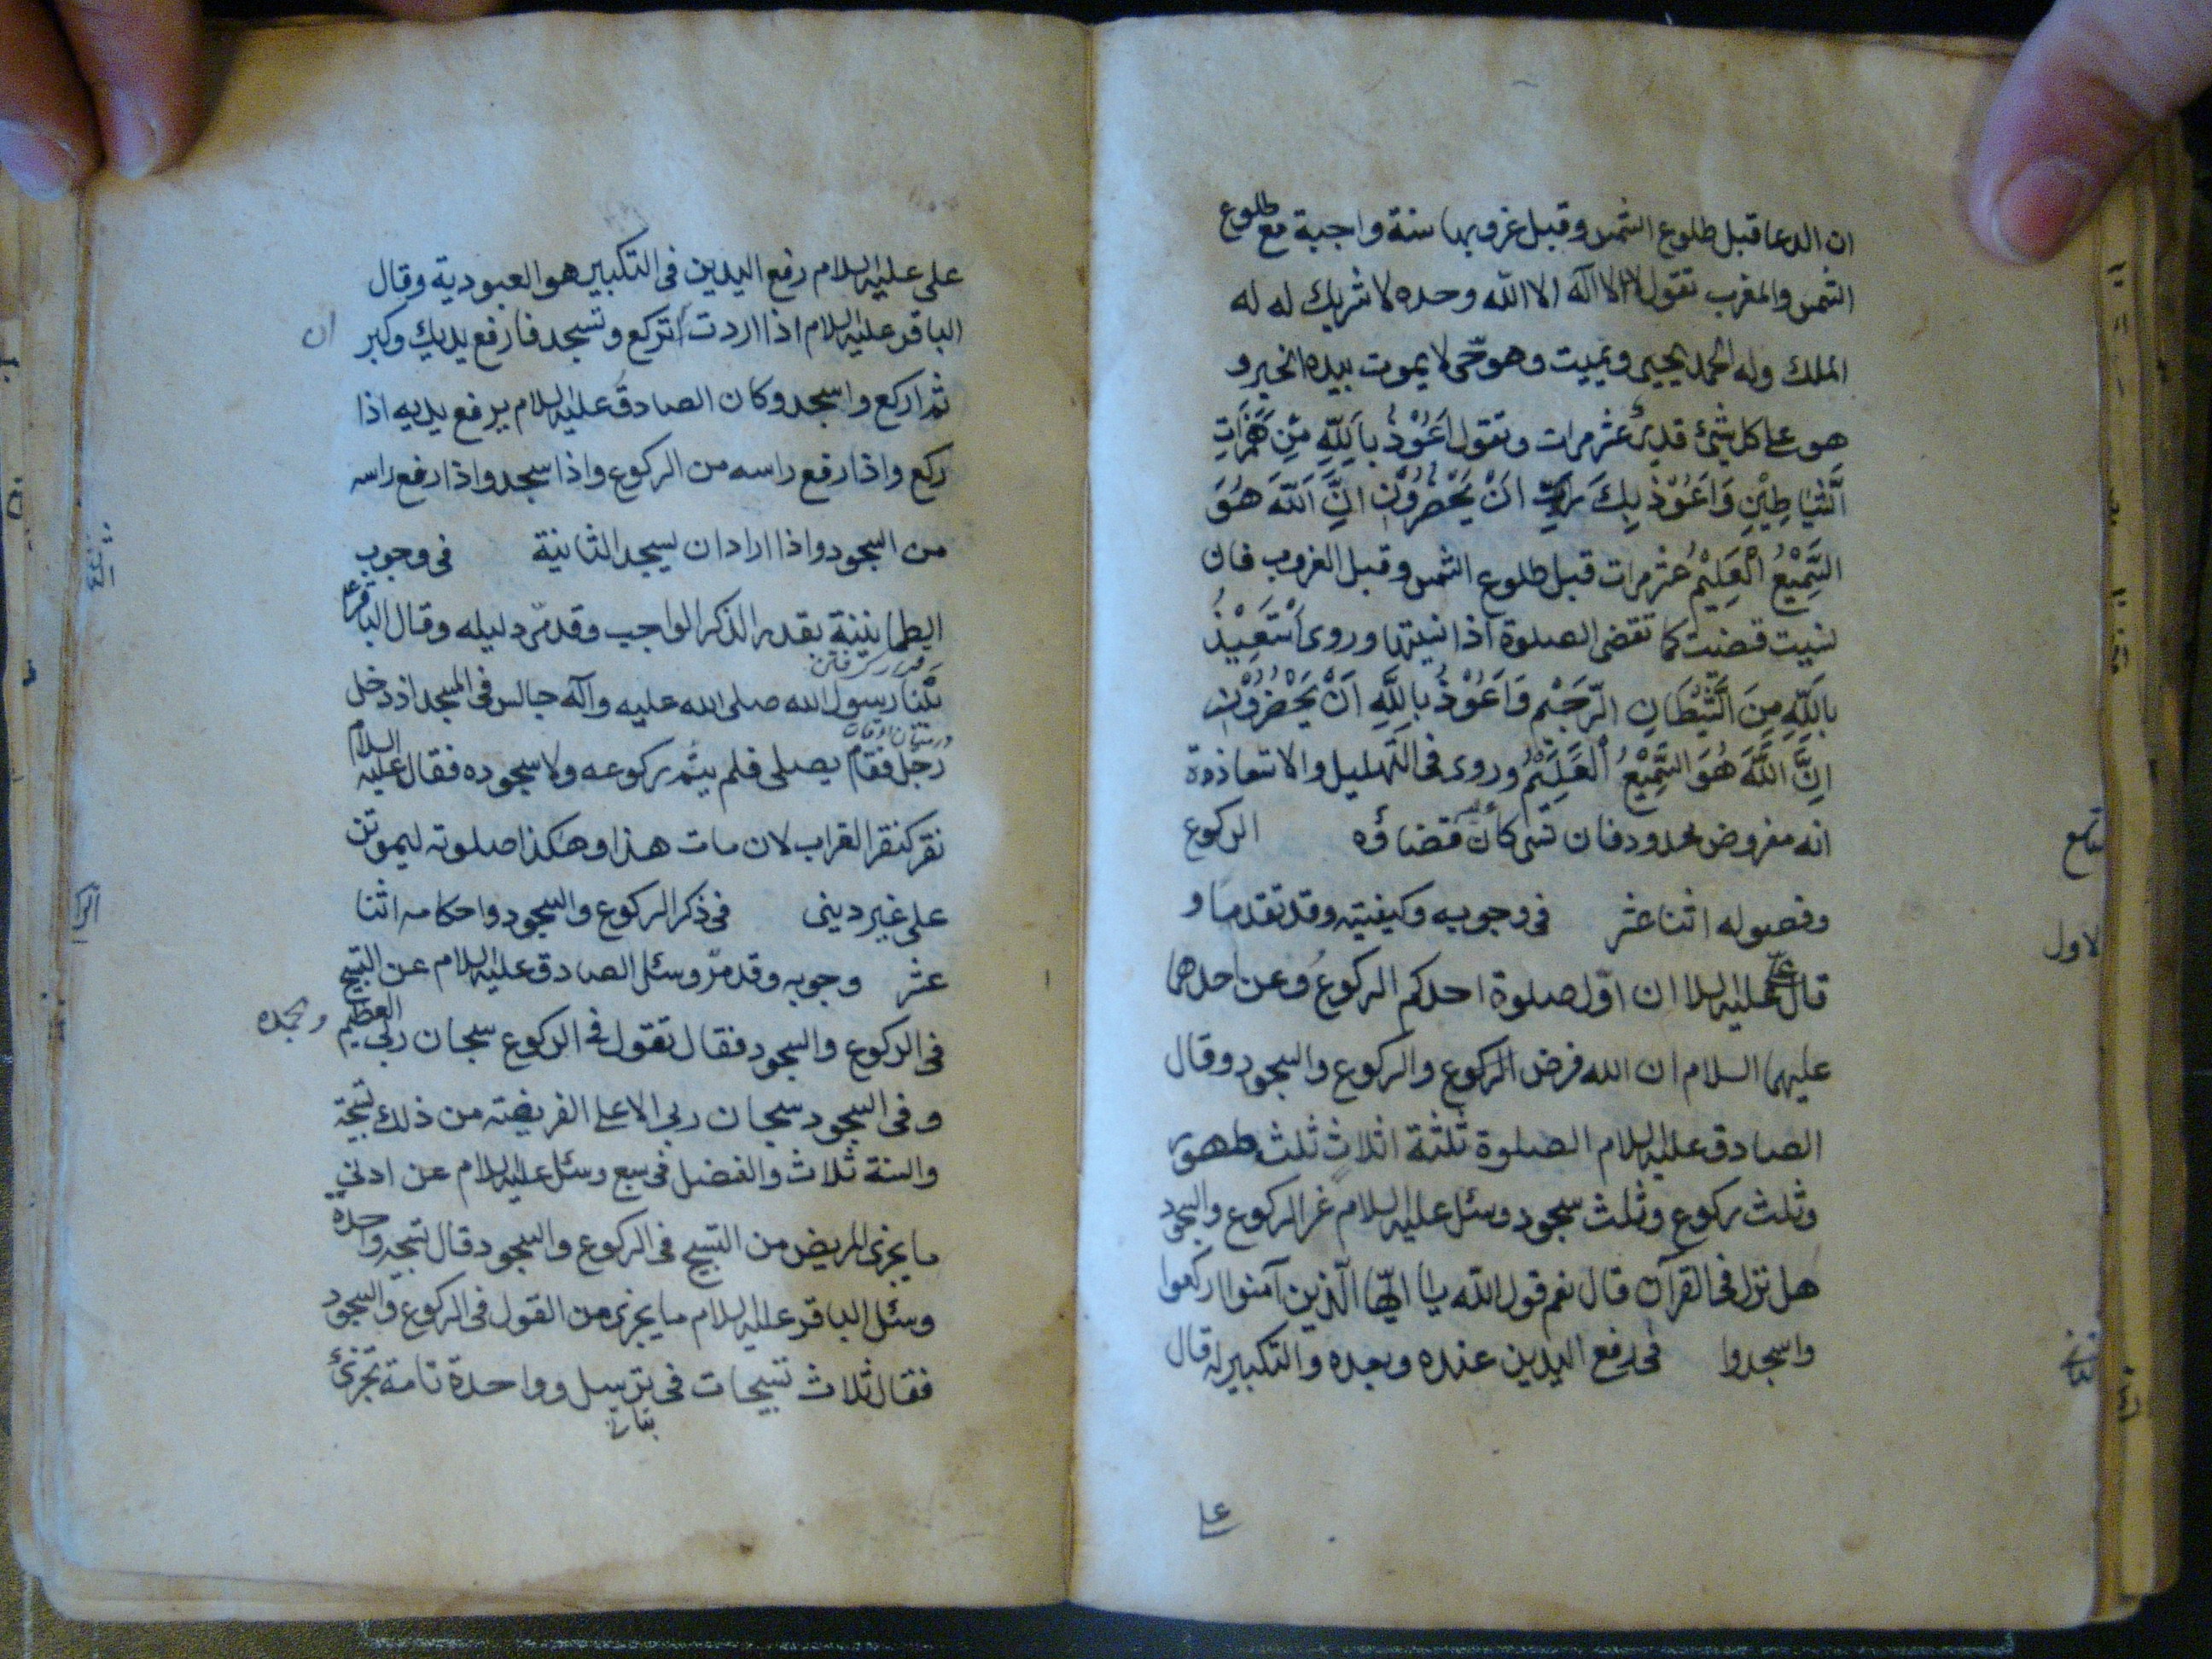 ان الدعا قبل طلوع الشمس وقبل غروبها سنة واجبة مع طلوع
الشمس والمغرب تقول لا اله الا الله وحده لا شريك له له
الملك وله الحمد يحيى ويميت وهو حى لا يموت بيده الخير و
هو على كل شئ قدير عشر مرات وتقول اَعُوْذُ بِاللّٰهِ مِنْ هَمَزَاتِ
الشَّيَاطِيْنِ وَاَعُوْذُ بِكَ رَبِّ اَنْ يَحْضُرُوْنِ اِنَّ اللّٰهَ هُوَ
السَّمِيْعُ الْعَلِيْمُ عشر مرات قبل طلوع الشمس وقبل الغروب فان
نسيت قضيت كما تقضى الصلوة اذا نسيتها وروى اَسْتَعِيْذُ
بِاللّٰهِ مِنَ الشَّيْطَانِ الرَّجِيْمِ وَاَعُوْذُ بِاللّٰهِ اَنْ يَحْضُرُوْنِ
اِنَّ اللّٰهَ هُوَ السَّمِيْعُ الْعَلِيْمُ وروى فى التهليل والاستعاذة
انه مفروض محدود فان نسى كان عليه قضاؤه الركوع
وفصوله اثنا عشر فى وجوبه وكيفيته وقد تقدما و
قال على عليه السلام ان اوّل صلوة احدكم الركوع وعن احدهما
عليهما السلام ان الله فرض الركوع والركوع والسجود وقال
الصادق عليه السلام الصلوة ثلثة اثلاث ثلث طهور
وثلث ركوع وثلث سجود وسئل عليه السلام عن الركوع والسجود
هل نزل فى القرآن قال نعم قول الله يا ايّها الّذين آمنوا اركعوا
واسجدوا فى رفع اليدين عنده وبعده والتكبير له قال
لاول
على
على عليه السلام رفع اليدين فى التكبير هو العبودية وقال
الباقر عليه السلام اذا اردت ان تركع وتسجد فارفع يديك وكبر
ان
ثم اركع واسجد وكان الصادق عليه السلام يرفع يديه اذا
ركع واذا رفع راسه من الركوع واذا سجد واذا رفع راسه
من السجود واذا اراد ان يسجد الثانية فى وجوب
الطمانينة بقدر الذكر الواجب وقد مرّ دليله وقال الباقر ع
بَيْنَا رسول الله صلى الله عليه وآله جالس فى المسجد اذ دخل
رجل فقام يصلى فلم يتم ركوعه ولا سجوده فقال عليه السلام
نقر كنقر الغراب لان مات هذا وهكذا صلوته ليموتن
على غير دينى فى ذكر الركوع والسجود واحكامه اثنا
عشر وجوبه وقد مرّ وسئل الصادق عليه السلام عن التسبيح
فى الركوع والسجود فقال تقول فى الركوع سبحان ربى العظيم
وبحمده
وفى السجود سبحان ربى الاعلى الفريضة من ذلك تسبيحة
والسنة ثلاث والفضل فى سبع وسئل عليه السلام عن ادنى
ما يجزى المريض من التسبيح فى الركوع والسجود قال تسبيحة واحدة
وسئل الباقر عليه السلام ما يجزى من القول فى الركوع والسجود
فقال ثلاث تسبيحات فى ترسل وواحدة تامة تجزئ